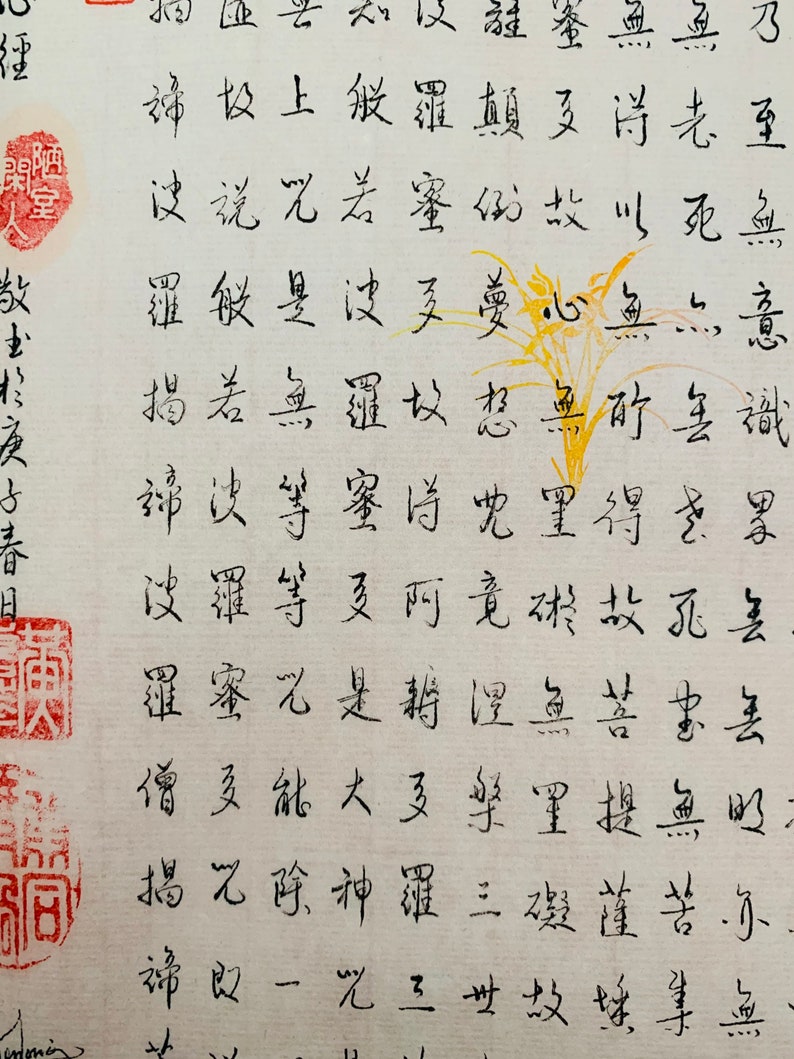 乃至無意識界無無明亦無
無老死亦無老死盡無苦集
無得以無所得故菩提薩埵
蜜多故心無罣礙無罣礙故
離顛倒夢想究竟涅槃三世
波羅蜜多故得阿耨多羅三
知般若波羅蜜多是大神咒
無上咒是無等等咒能除一
虛故說般若波羅蜜多咒即
揭諦波羅揭諦波羅僧揭諦
心經
陋室閑人
敬書於庚子春日
黃